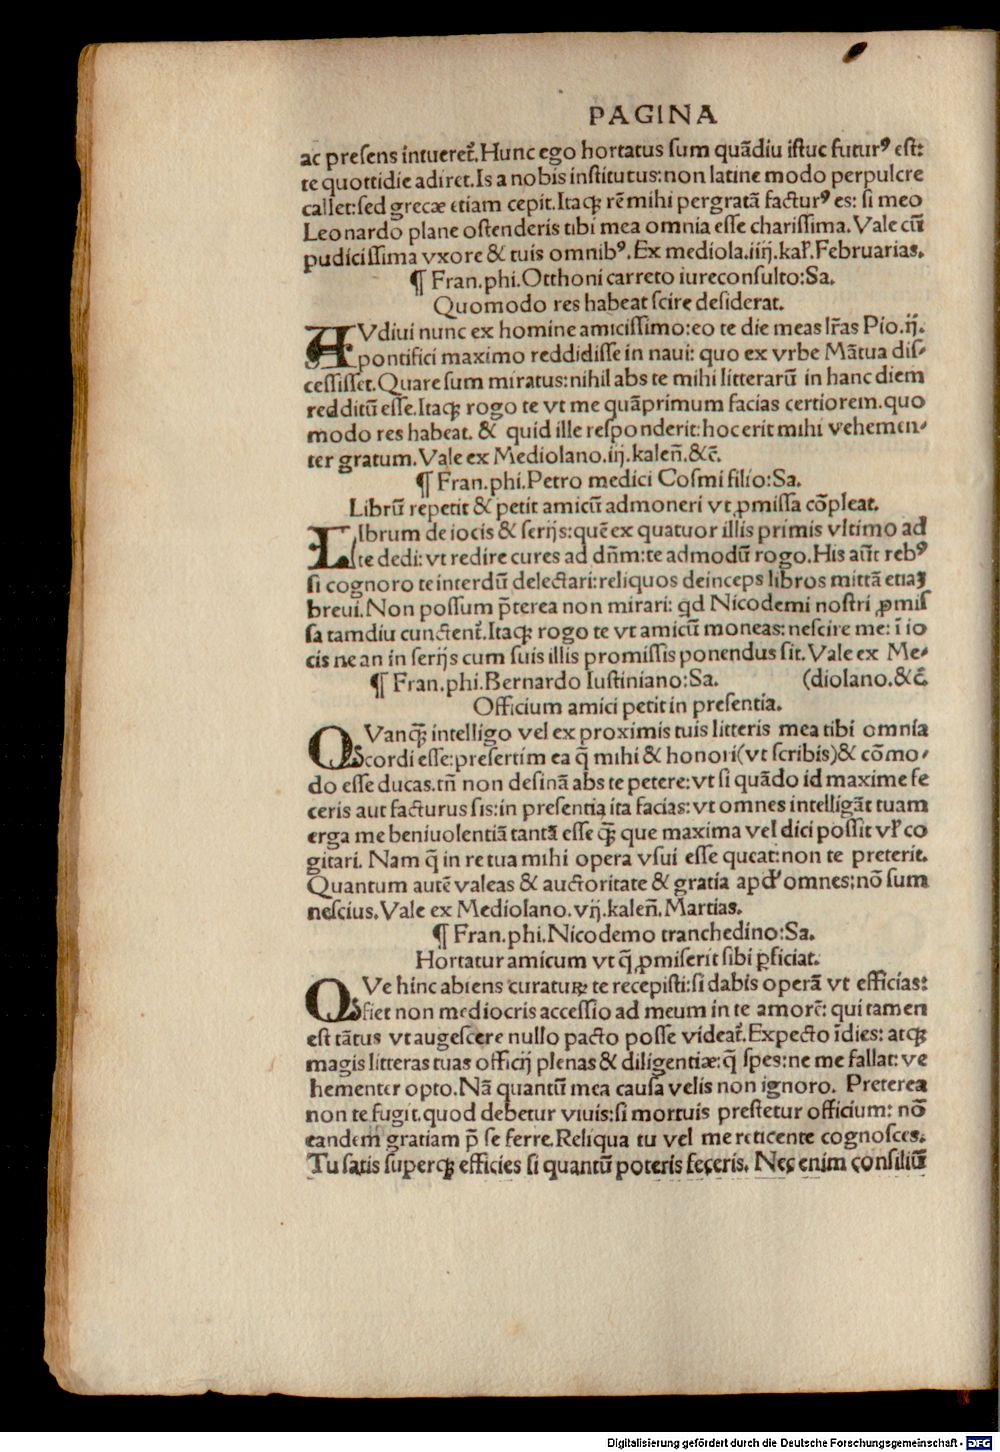 PAGINA
ac presens intueret̃.Hunc ego hortatus sum quãdiu istuc futurꝰ est:
te quottidie adiret.Is a nobis institutus:non latine modo perpulcre
callet:sed grecæ etiam cepit.Itaqꝫ rẽ mihi pergratã facturꝰ es: si meo
Leonardo plane ostenderis tibi mea omnia esse charissima.Vale cũ
pudicissima vxore & tuis omnibꝰ.Ex mediola.iiij.kal̃.Februarias.
¶ Fran.phi.Otthoni carreto iureconsulto:Sa.
Quomodo res habeat scire desiderat.
AVdiui nunc ex homine amicissimo:eo te die meas lr̃as Pio.ij.
pontifici maximo reddidisse in naui: quo ex vrbe Mãtua dis⸗
cessisset.Quare sum miratus:nihil abs te mihi litterarũ in hanc diem
redditũ esse.Itaqꝫ rogo te vt me quãprimum facias certiorem.quo
modo res habeat. & quid ille responderit:hoc erit mihi vehemen⸗
ter gratum.Vale ex Mediolano.iij.kaleñ.&c̃.
¶ Fran.phi.Petro medici Cosmi filio:Sa.
Librũ repetit & petit amicũ admoneri vt ꝓmissa cõpleat.
LIbrum de iocis & serijs:quẽ ex quatuor illis primis vltimo ad
te dedi: vt redire cures ad dñm:te admodũ rogo.His aũt rebꝰ
si cognoro te interdũ delectari:reliquos deinceps libros mittã etiaꝫ
breui.Non possum p̃terea non mirari: qd Nicodemi nostri ꝓmis
sa tamdiu cunctent̃.Itaqꝫ rogo te vt amicũ moneas:nescire me: ĩ io
cis ne an in serijs cum suis illis promissis ponendus sit.Vale ex Me⸗
¶ Fran.phi.Bernardo Iustiniano:Sa. (diolano.&c̃.
Officium amici petit in presentia.
QVanqꝫ̃ intelligo vel ex proximis tuis litteris mea tibi omnia
cordi esse:presertim ea q̃ mihi & honori(vt scribis)& cõmo⸗
do esse ducas.tñ non desinã abs te petere:vt si quãdo id maxime fe
ceris aut facturus sis:in presentia ita facias:vt omnes intelligãt tuam
erga me beniuolentiã tantã esse qꝫ̃ que maxima vel dici possit vl̃ co
gitari. Nam q̃ in re tua mihi opera vsui esse queat:non te preterit.
Quantum autẽ valeas & auctoritate & gratia apd' omnes:nõ sum
nescius.Vale ex Mediolano.vij.kaleñ.Martias.
¶ Fran.phi.Nicodemo tranchedino:Sa.
Hortatur amicum vt q̃ ꝓmiserit sibi ꝑficiat.
QVe hinc abiens curaturꝝ te recepisti:si dabis operã vt efficias:
fiet non mediocris accessio ad meum in te amorẽ: qui tamen
est tãtus vt augescere nullo pacto posse videat̃.Expecto ĩdies: atqꝫ
magis litteras tuas officij plenas & diligentiæ:q̃ spes:ne me fallat: ve
hementer opto.Nã quantũ mea causa velis non ignoro. Preterea
non te fugit.quod debetur viuis:si mortuis prestetur officium: nõ
eandem gratiam p̃ se ferre.Reliqua tu vel me reticente cognosces.
Tu satis superqꝫ efficies si quantũ poteris feceris. Nec enim consiliũ
Digitalisierung gefördert durch die Deutsche Forschungsgemeinschaft - DFG